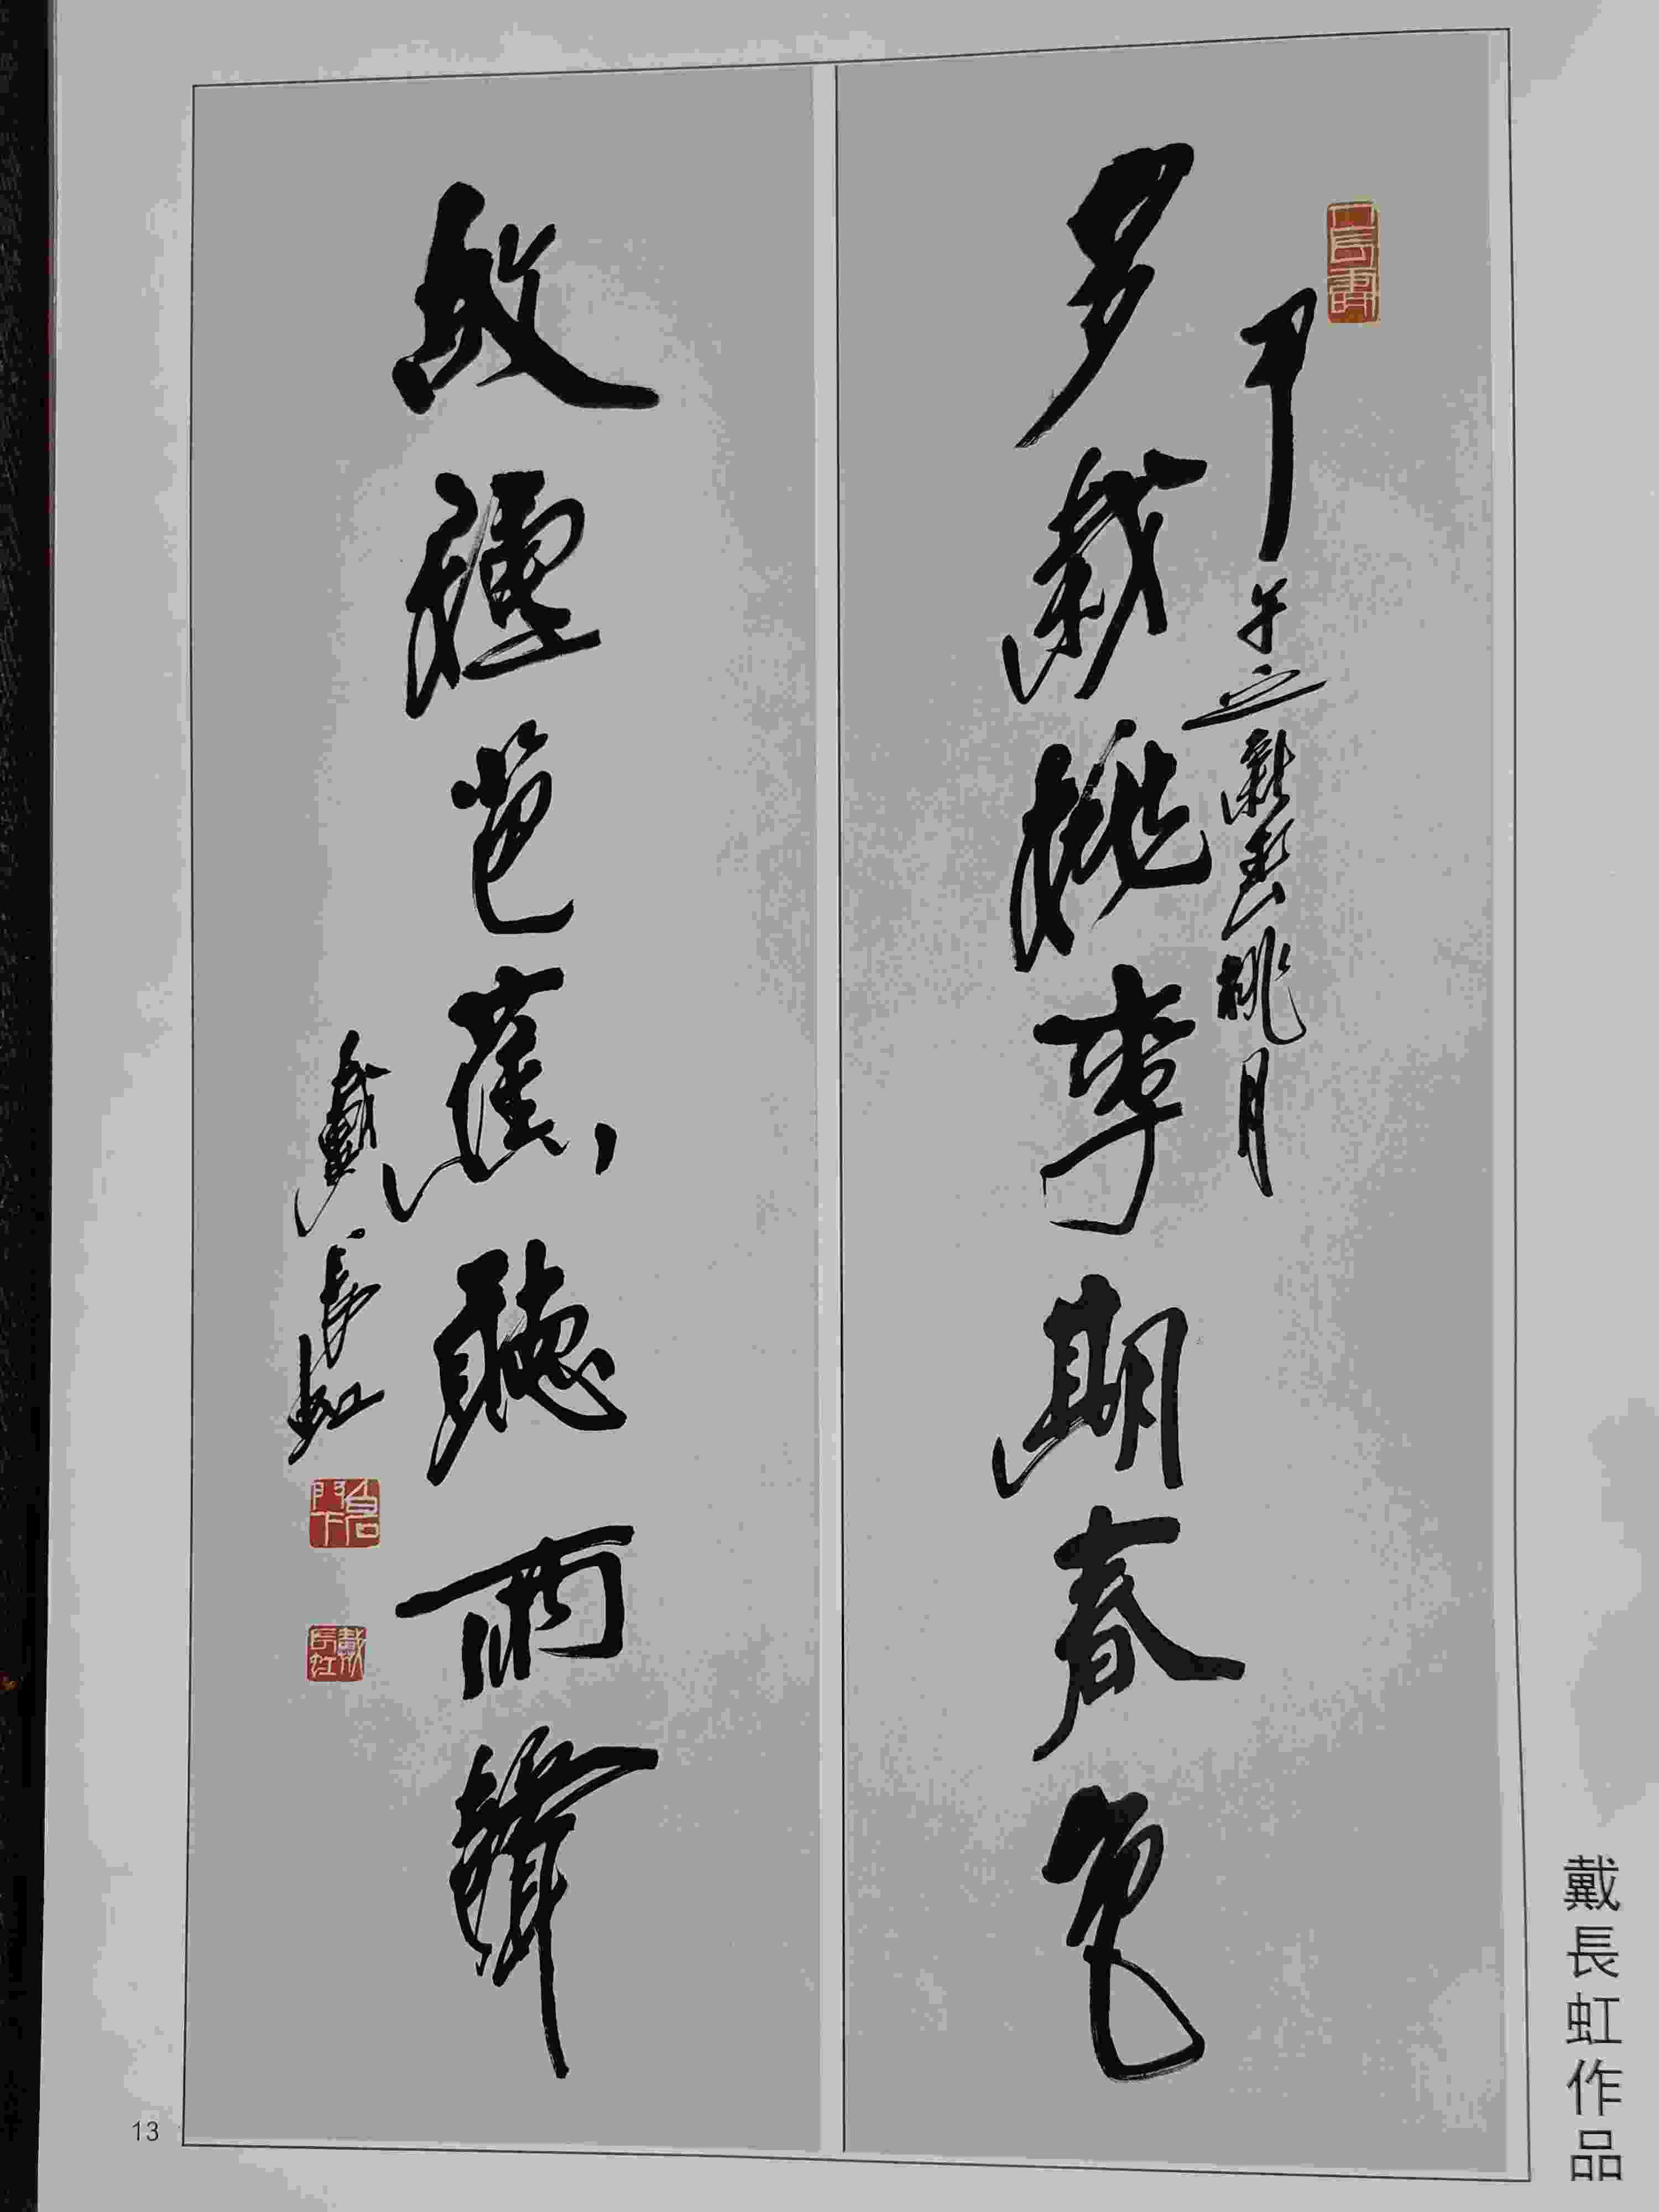 多栽桃李期春色
甲午之新春桃月
故種芭蕉聽雨聲
戴長虹
戴長虹
戴長虹作品
13